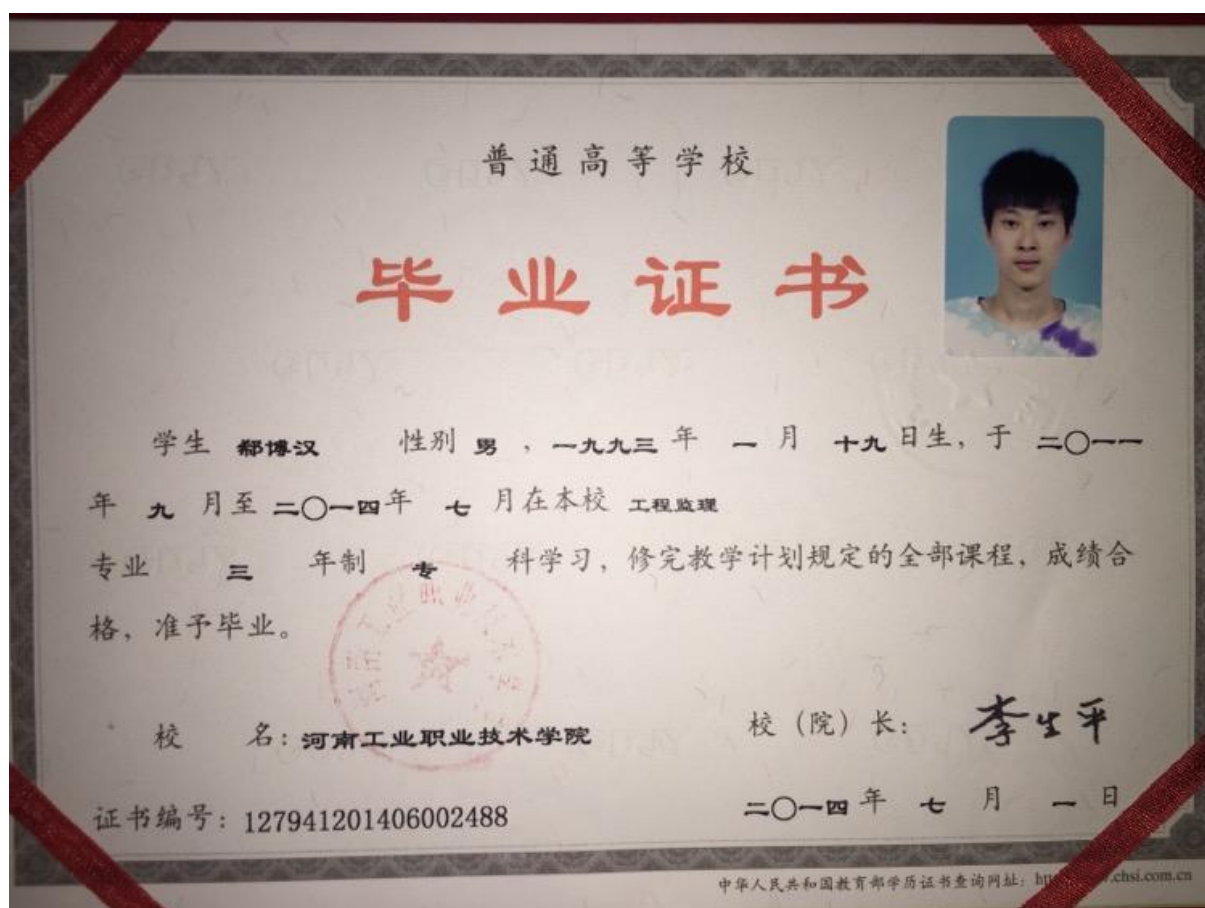 普通高等学校
毕业证书
学生 郗博汉 性别 男 ，一九九三 年 一 月 十九 日生，于 二〇一一
年 九 月至 二〇一四年 七 月在本校 工程监理
专业 三 年制 专 科学习，修完教学计划规定的全部课程，成绩合
格，准予毕业。
校 名：河南工业职业技术学院
校（院）长：李生平
证书编号：127941201406002488
二〇一四 年 七 月 一 日
中华人民共和国教育部学历证书查询网址：chsi.com.cn